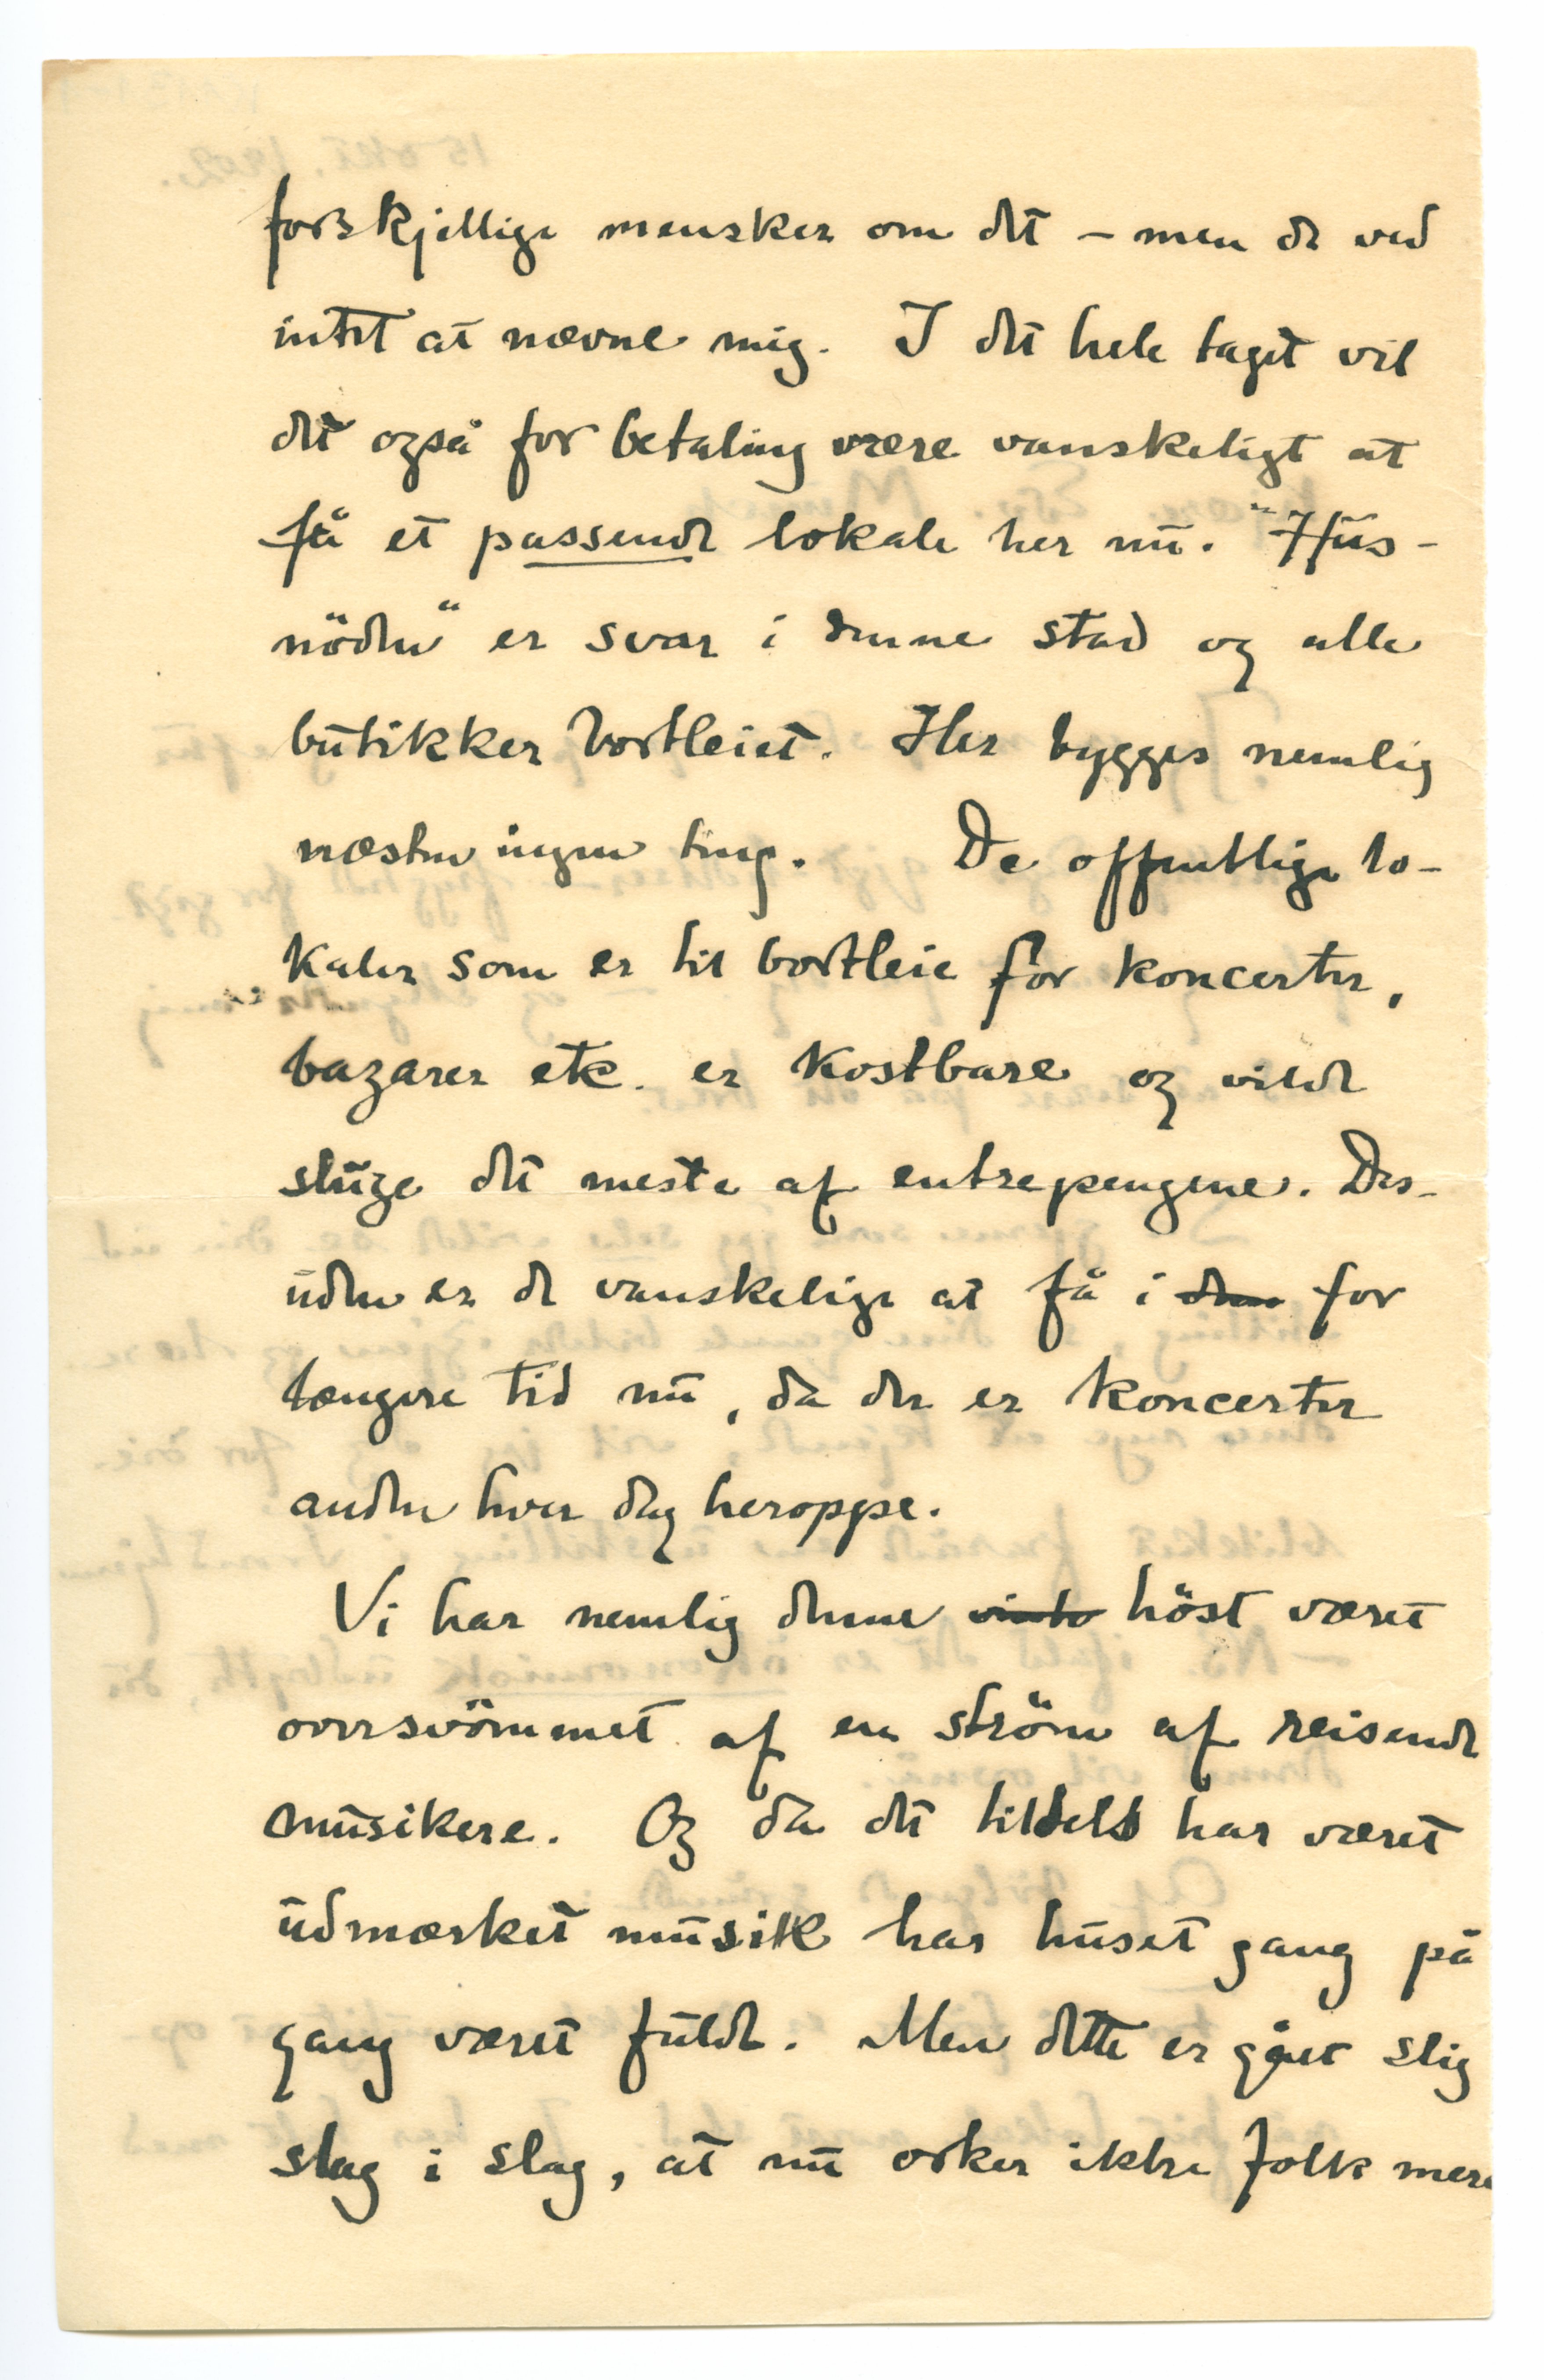 forskjellige mensker om det – men de ved
intet at nævne mig. I det hele taget vil
det også for betaling være vanskeligt at
få et passende lokale her nu. "Hus-
nöden" er svær i denne stad og alle
butikker bortleiet. Her bygges nemlig
næsten ingen ting. De offentlige lo-
kaler som er til bortleie for koncerter,
bazarer etc. er kostbare og vilde
sluge det meste af entrepengene. Des-
uden er de vanskelige at få i den for
længere tid nu, da der er koncerter
anden hver dag heroppe.
Vi har nemlig denne vinte höst været
oversvömmet af en ström af reisende
musikere. Og da det tildels har været
udmærket musik har huset gang på
gang været fuldt. Men dette er gået slig
slag i slag, at nu orker ikke folk mere